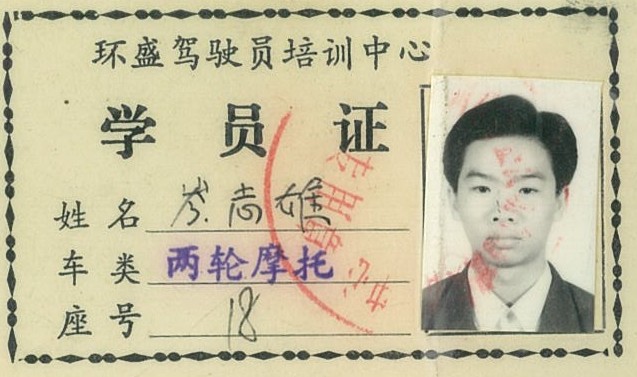 环盛驾驶员培训中心
学员证
姓名 岑志雄
车类 两轮摩托
座号 18